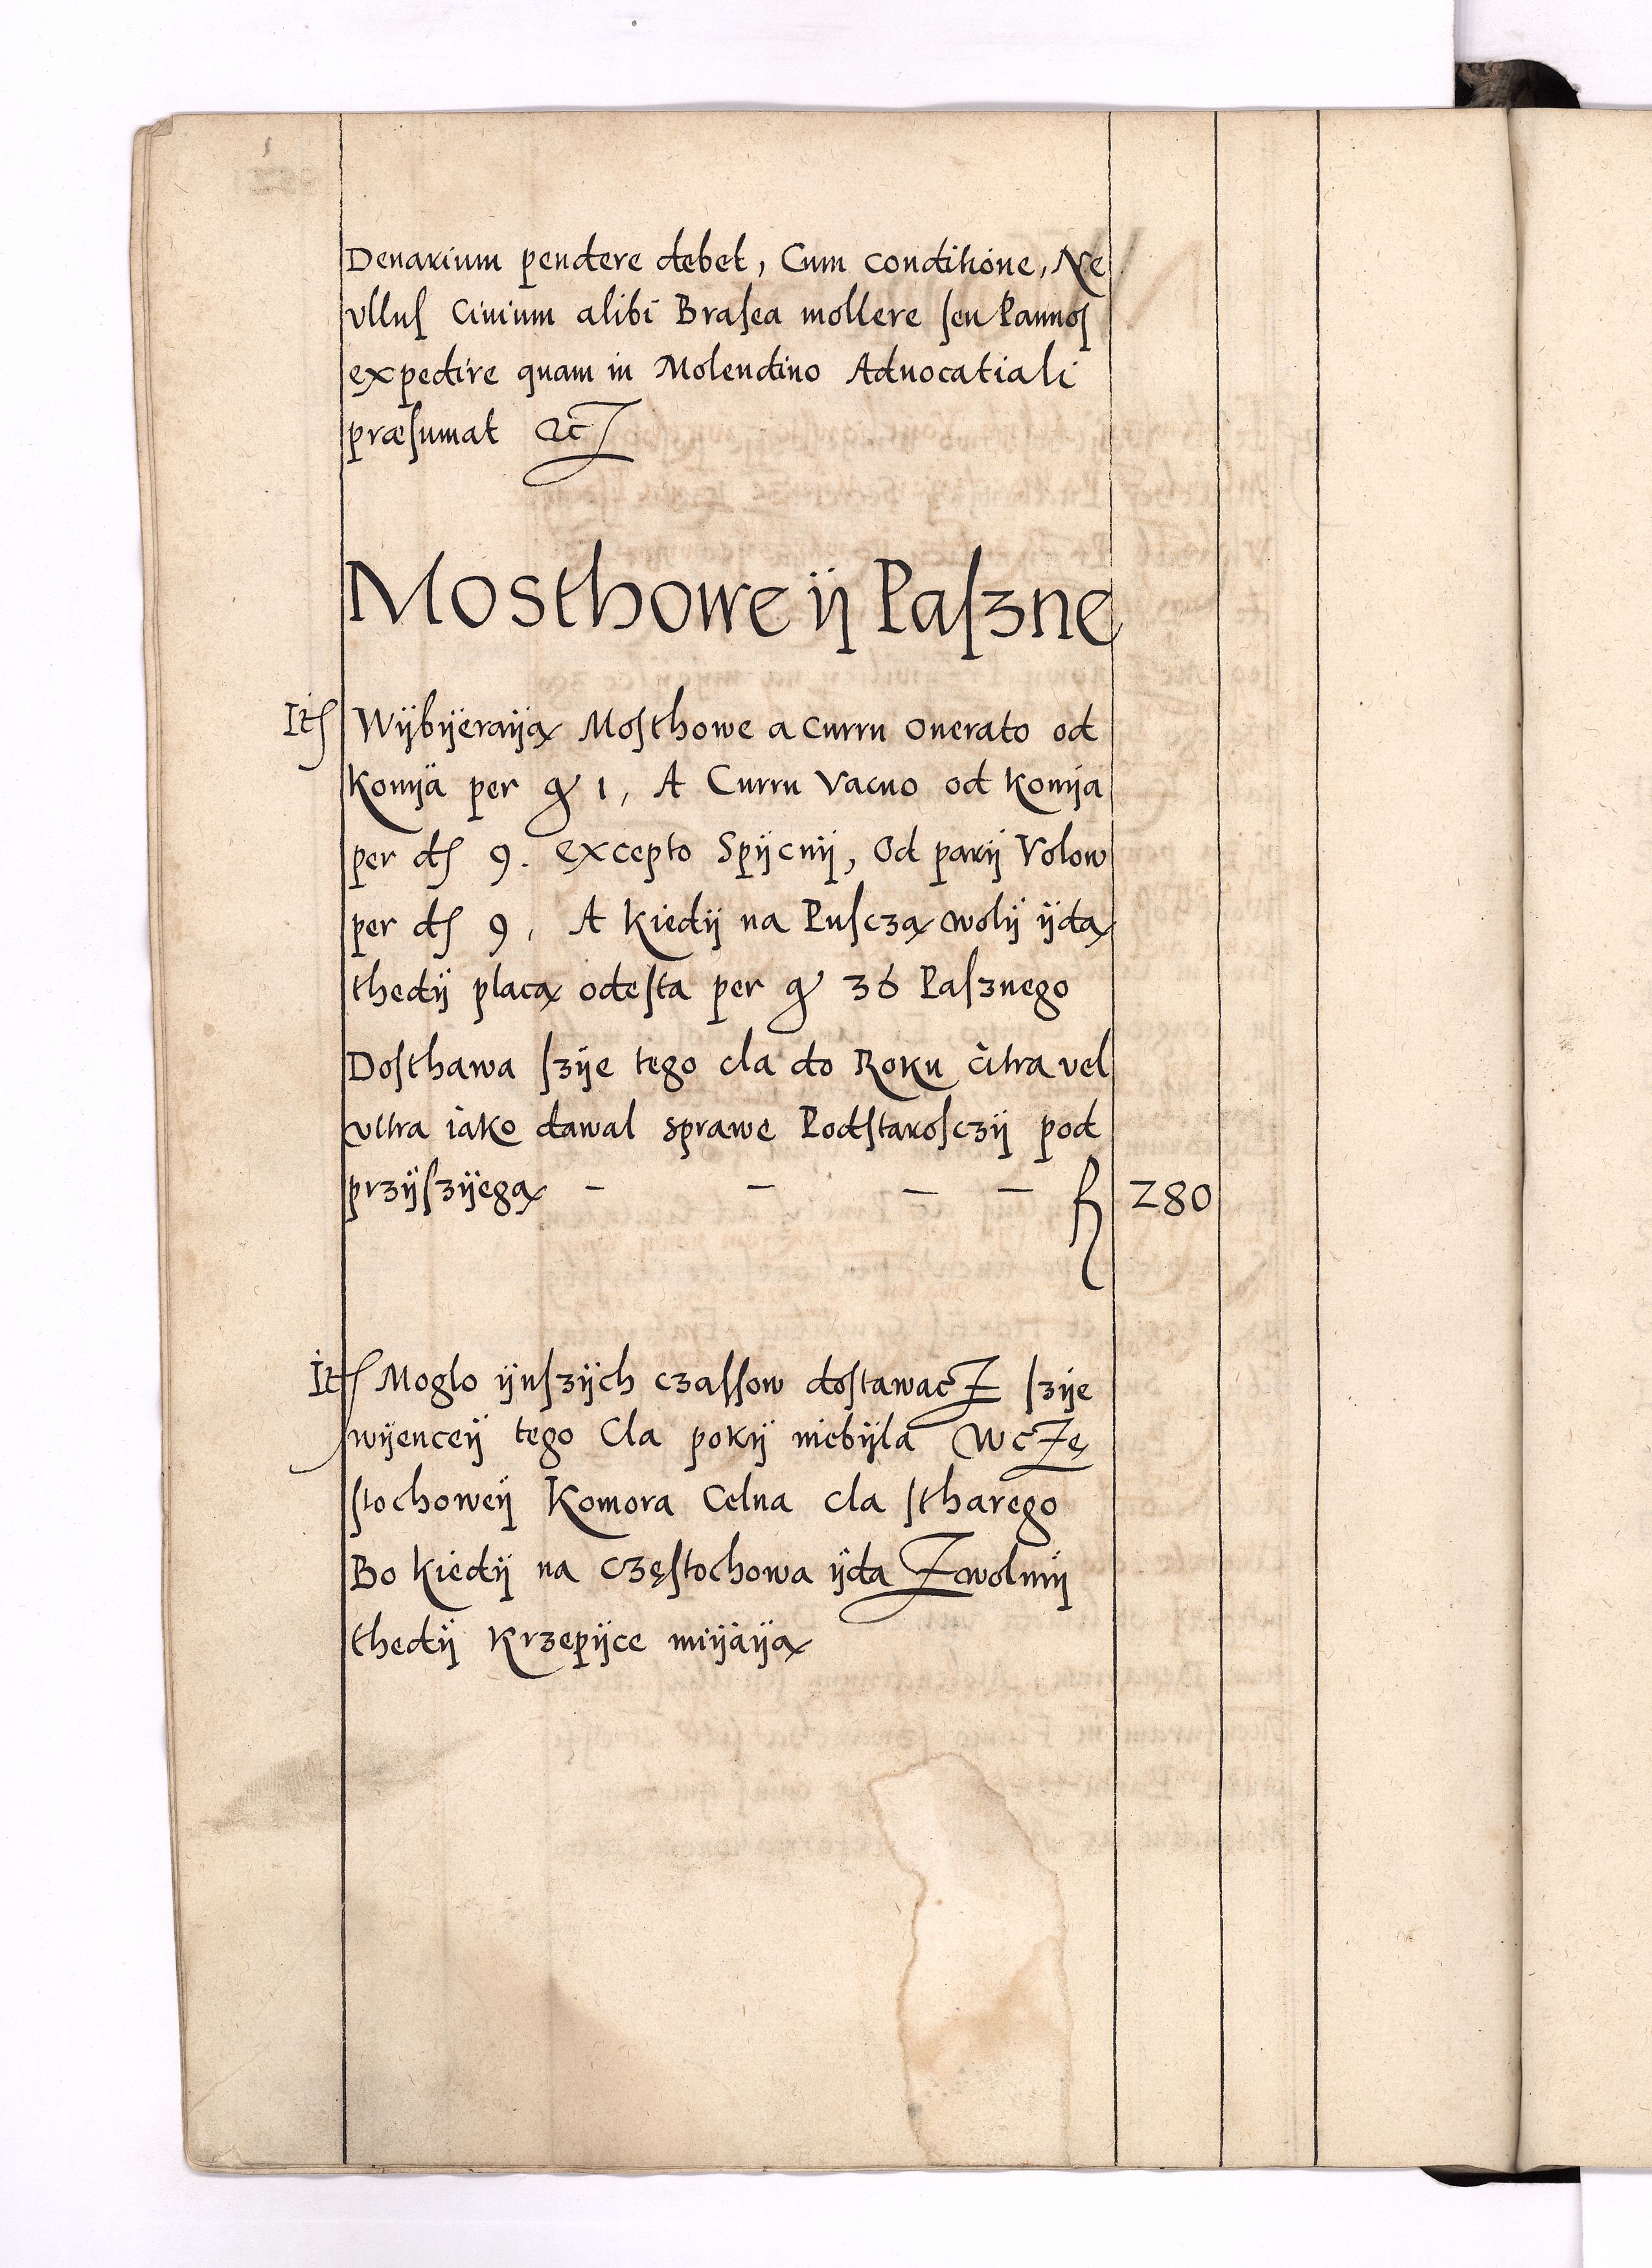 Denarium pendere debet, Cum conditione, Ne
vlluſ Ciuium alibi Braſea mollere ſeu Pannoſ
expedire quam in Molendino Aduocatiali
præſumat &cZ
Mosthowe ÿ Paſzne
Itſ Wÿbÿeraÿą Moſthowe a curru onerato od
Konÿa per gͬ 1, A Curru vacuo od Konÿa
per dſ 9. excepto Spÿcnÿ, Od parÿ Volow
per dſ 9, A kiedÿ na Puſczą wolÿ ÿdą
thedÿ placą odeſta per gͬ 36 Paſznego
Doſthawa ſzÿe tego cla do Roku citra vel
vltra iako dawal sprawe Podſtaroſczÿ pod
przÿſzÿegą – – – – fl 280
Itſ Moglo ÿnſzÿch czaſſow doſtawacZ ſzÿe
wÿenceÿ tego Cla pokÿ niebÿla WcZę
ſtochoweÿ Komora Celna cla ſtharego
Bo kiedÿ na Częſtochowa ÿda Zwolmÿ
thedÿ Krzepÿce mÿaÿą